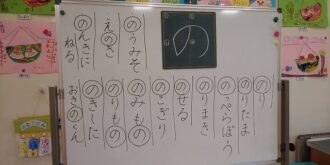 の
のり
のりたま
のっぺらぼう
のりまき
のせる
のこぎり
のみもの
のりもの
のきした
おきのくん
のうみそ
えのき
のんきに
ねる